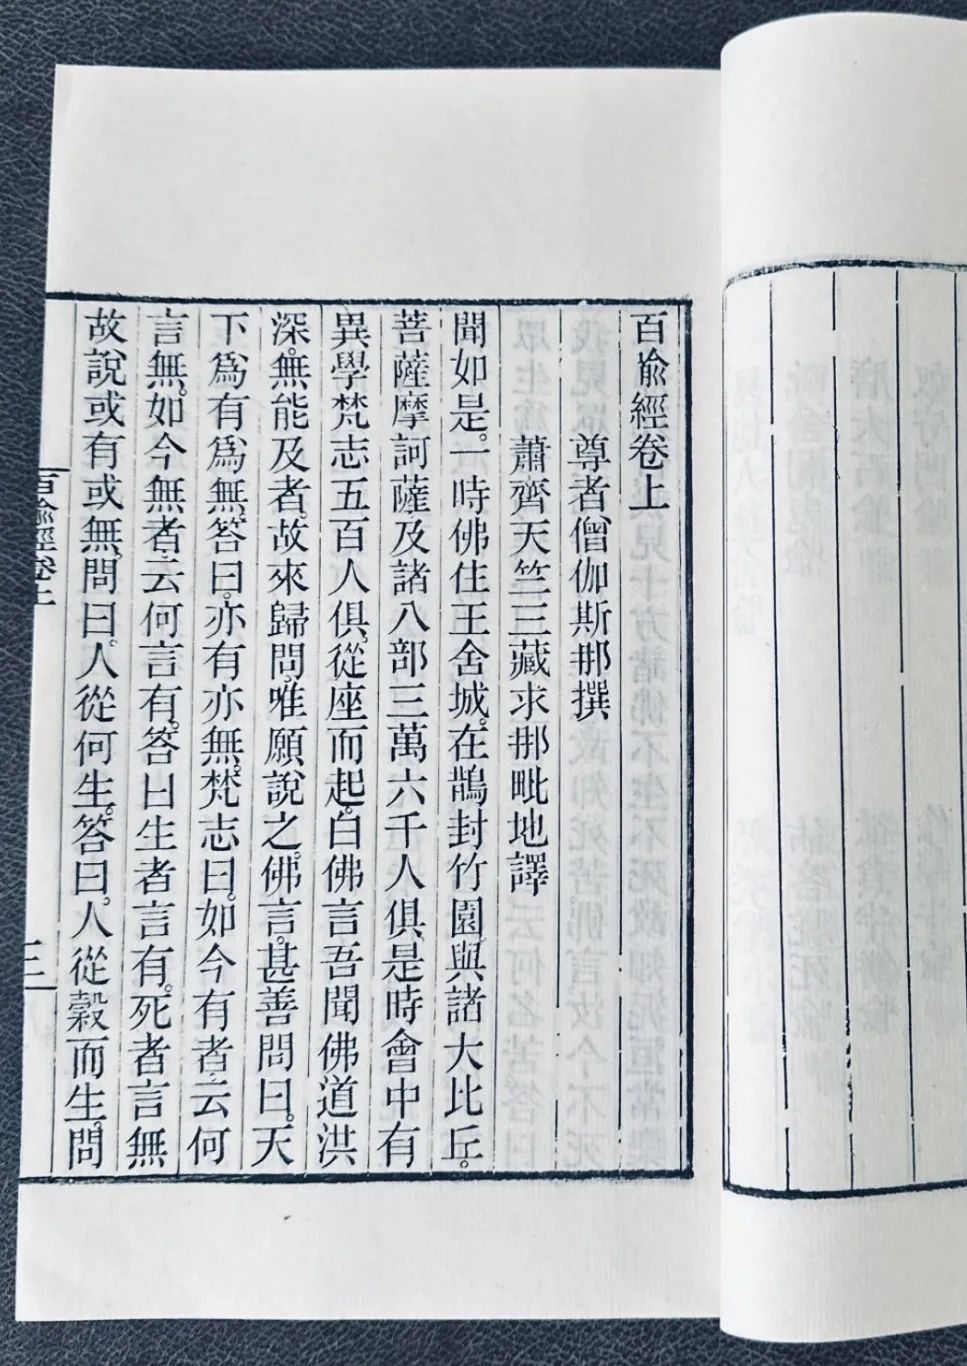 百喻經卷上
尊者僧伽斯那撰
蕭齊天竺三藏求那毗地譯
聞如是。一時佛住王舍城。在鵲封竹園與諸大比丘。
菩薩摩訶薩及諸八部三萬六千人俱是時會中有
異學梵志五百人俱。從座而起。白佛言吾聞佛道洪
深。無能及者。故來歸問。唯願說之。佛言。甚善問曰。天
下爲有爲無。答曰。亦有亦無。梵志曰。如今有者。云何
言無。如今無者。云何言有。答曰生者言有。死者言無
故說或有或無。問曰。人從何生。答曰。人從穀而生。問
百喻經卷上